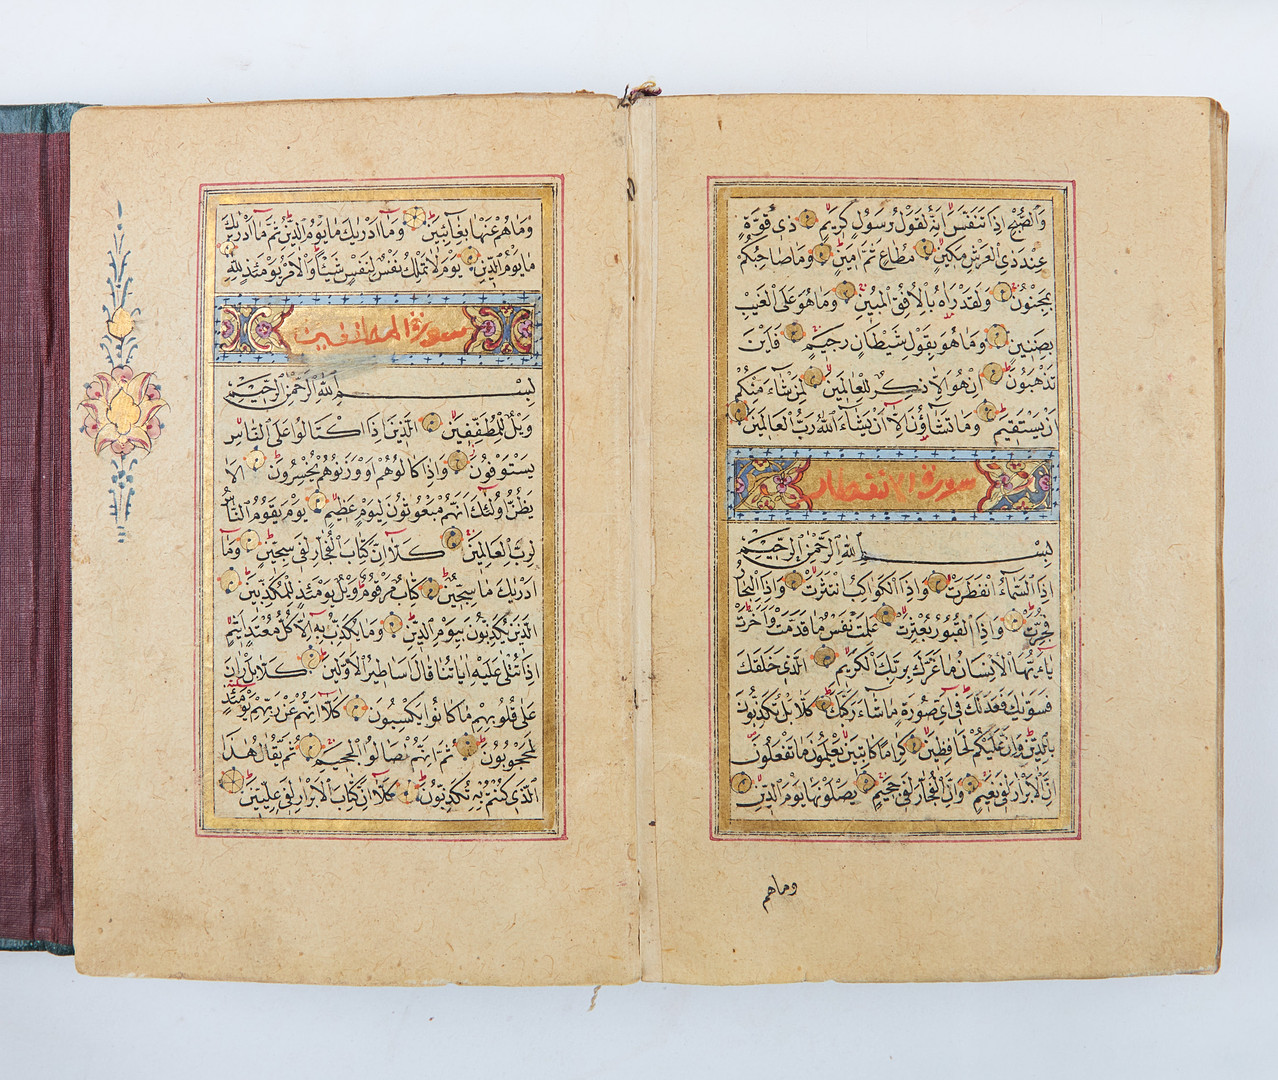 وَٱلصُّبْحِ اِذَا تَنَفَّسَ اِنَّهُ لَقَوْلُ رَسُولٍ كَرِيمٍ ذِى قُوَّةٍ
عِنْدَ ذِى الْعَرْشِ مَكِينٍ مُطَاعٍ ثَمَّ اَمِينٍ وَمَا صَاحِبُكُمْ
بِمَجْنُونٍ وَلَقَدْ رَاٰهُ بِالْاُفُقِ الْمُبِينِ وَمَا هُوَ عَلَى الْغَيْبِ
بِضَنِينٍ وَمَا هُوَ بِقَوْلِ شَيْطَانٍ رَجِيمٍ فَاَيْنَ
تَذْهَبُونَ اِنْ هُوَ اِلَّا ذِكْرٌ لِلْعَالَمِينَ لِمَنْ شَٓاءَ مِنْكُمْ
اَنْ يَسْتَقِيمَ وَمَا تَشَٓاؤُنَ اِلَّٓا اَنْ يَشَٓاءَ اللهُ رَبُّ الْعَالَمِينَ
سورة الانفطار
بِسْمِ اللهِ الرَّحْمٰنِ الرَّحِيمِ
اِذَا السَّمَٓاءُ انْفَطَرَتْ وَاِذَا الْكَوَاكِبُ انْتَثَرَتْ وَاِذَا الْبِحَارُ
فُجِّرَتْ وَاِذَا الْقُبُورُ بُعْثِرَتْ عَلِمَتْ نَفْسٌ مَا قَدَّمَتْ وَاَخَّرَتْ
يَٓا اَيُّهَا الْاِنْسَانُ مَا غَرَّكَ بِرَبِّكَ الْكَرِيمِ اَلَّذِى خَلَقَكَ
فَسَوّٰيكَ فَعَدَلَكَ فِٓى اَىِّ صُورَةٍ مَا شَٓاءَ رَكَّبَكَ كَلَّا بَلْ تُكَذِّبُونَ
بِالدِّينِ وَاِنَّ عَلَيْكُمْ لَحَافِظِينَ كِرَامًا كَاتِبِينَ يَعْلَمُونَ مَا تَفْعَلُونَ
اِنَّ الْاَبْرَارَ لَفِى نَعِيمٍ وَاِنَّ الْفُجَّارَ لَفِى جَحِيمٍ يَصْلَوْنَهَا يَوْمَ الدِّينِ
وما هم
وَمَا هُمْ عَنْهَا بِغَٓائِبِينَ وَمَٓا اَدْرٰيكَ مَا يَوْمُ الدِّينِ ثُمَّ مَٓا اَدْرٰيكَ
مَا يَوْمُ الدِّينِ يَوْمَ لَا تَمْلِكُ نَفْسٌ لِنَفْسٍ شَيْئًا وَالْاَمْرُ يَوْمَئِذٍ لِلّٰهِ
سورة المطففين
بِسْمِ اللهِ الرَّحْمٰنِ الرَّحِيمِ
وَيْلٌ لِلْمُطَفِّفِينَ اَلَّذِينَ اِذَا اكْتَالُوا عَلَى النَّاسِ
يَسْتَوْفُونَ وَاِذَا كَالُوهُمْ اَوْ وَزَنُوهُمْ يُخْسِرُونَ اَلَا
يَظُنُّ اُولٰٓئِكَ اَنَّهُمْ مَبْعُوثُونَ لِيَوْمٍ عَظِيمٍ يَوْمَ يَقُومُ النَّاسُ
لِرَبِّ الْعَالَمِينَ كَلَّٓا اِنَّ كِتَابَ الْفُجَّارِ لَفِى سِجِّينٍ وَمَٓا
اَدْرٰيكَ مَا سِجِّينٌ كِتَابٌ مَرْقُومٌ وَيْلٌ يَوْمَئِذٍ لِلْمُكَذِّبِينَ
اَلَّذِينَ يُكَذِّبُونَ بِيَوْمِ الدِّينِ وَمَا يُكَذِّبُ بِهِ اِلَّا كُلُّ مُعْتَدٍ اَثِيمٍ
اِذَا تُتْلٰى عَلَيْهِ اٰيَاتُنَا قَالَ اَسَاطِيرُ الْاَوَّلِينَ كَلَّا بَلْ رَانَ
عَلٰى قُلُوبِهِمْ مَا كَانُوا يَكْسِبُونَ كَلَّٓا اِنَّهُمْ عَنْ رَبِّهِمْ يَوْمَئِذٍ
لَمَحْجُوبُونَ ثُمَّ اِنَّهُمْ لَصَالُوا الْجَحِيمِ ثُمَّ يُقَالُ هٰذَا
الَّذِى كُنْتُمْ بِهِ تُكَذِّبُونَ كَلَّٓا اِنَّ كِتَابَ الْاَبْرَارِ لَفِى عِلِّيِّينَ